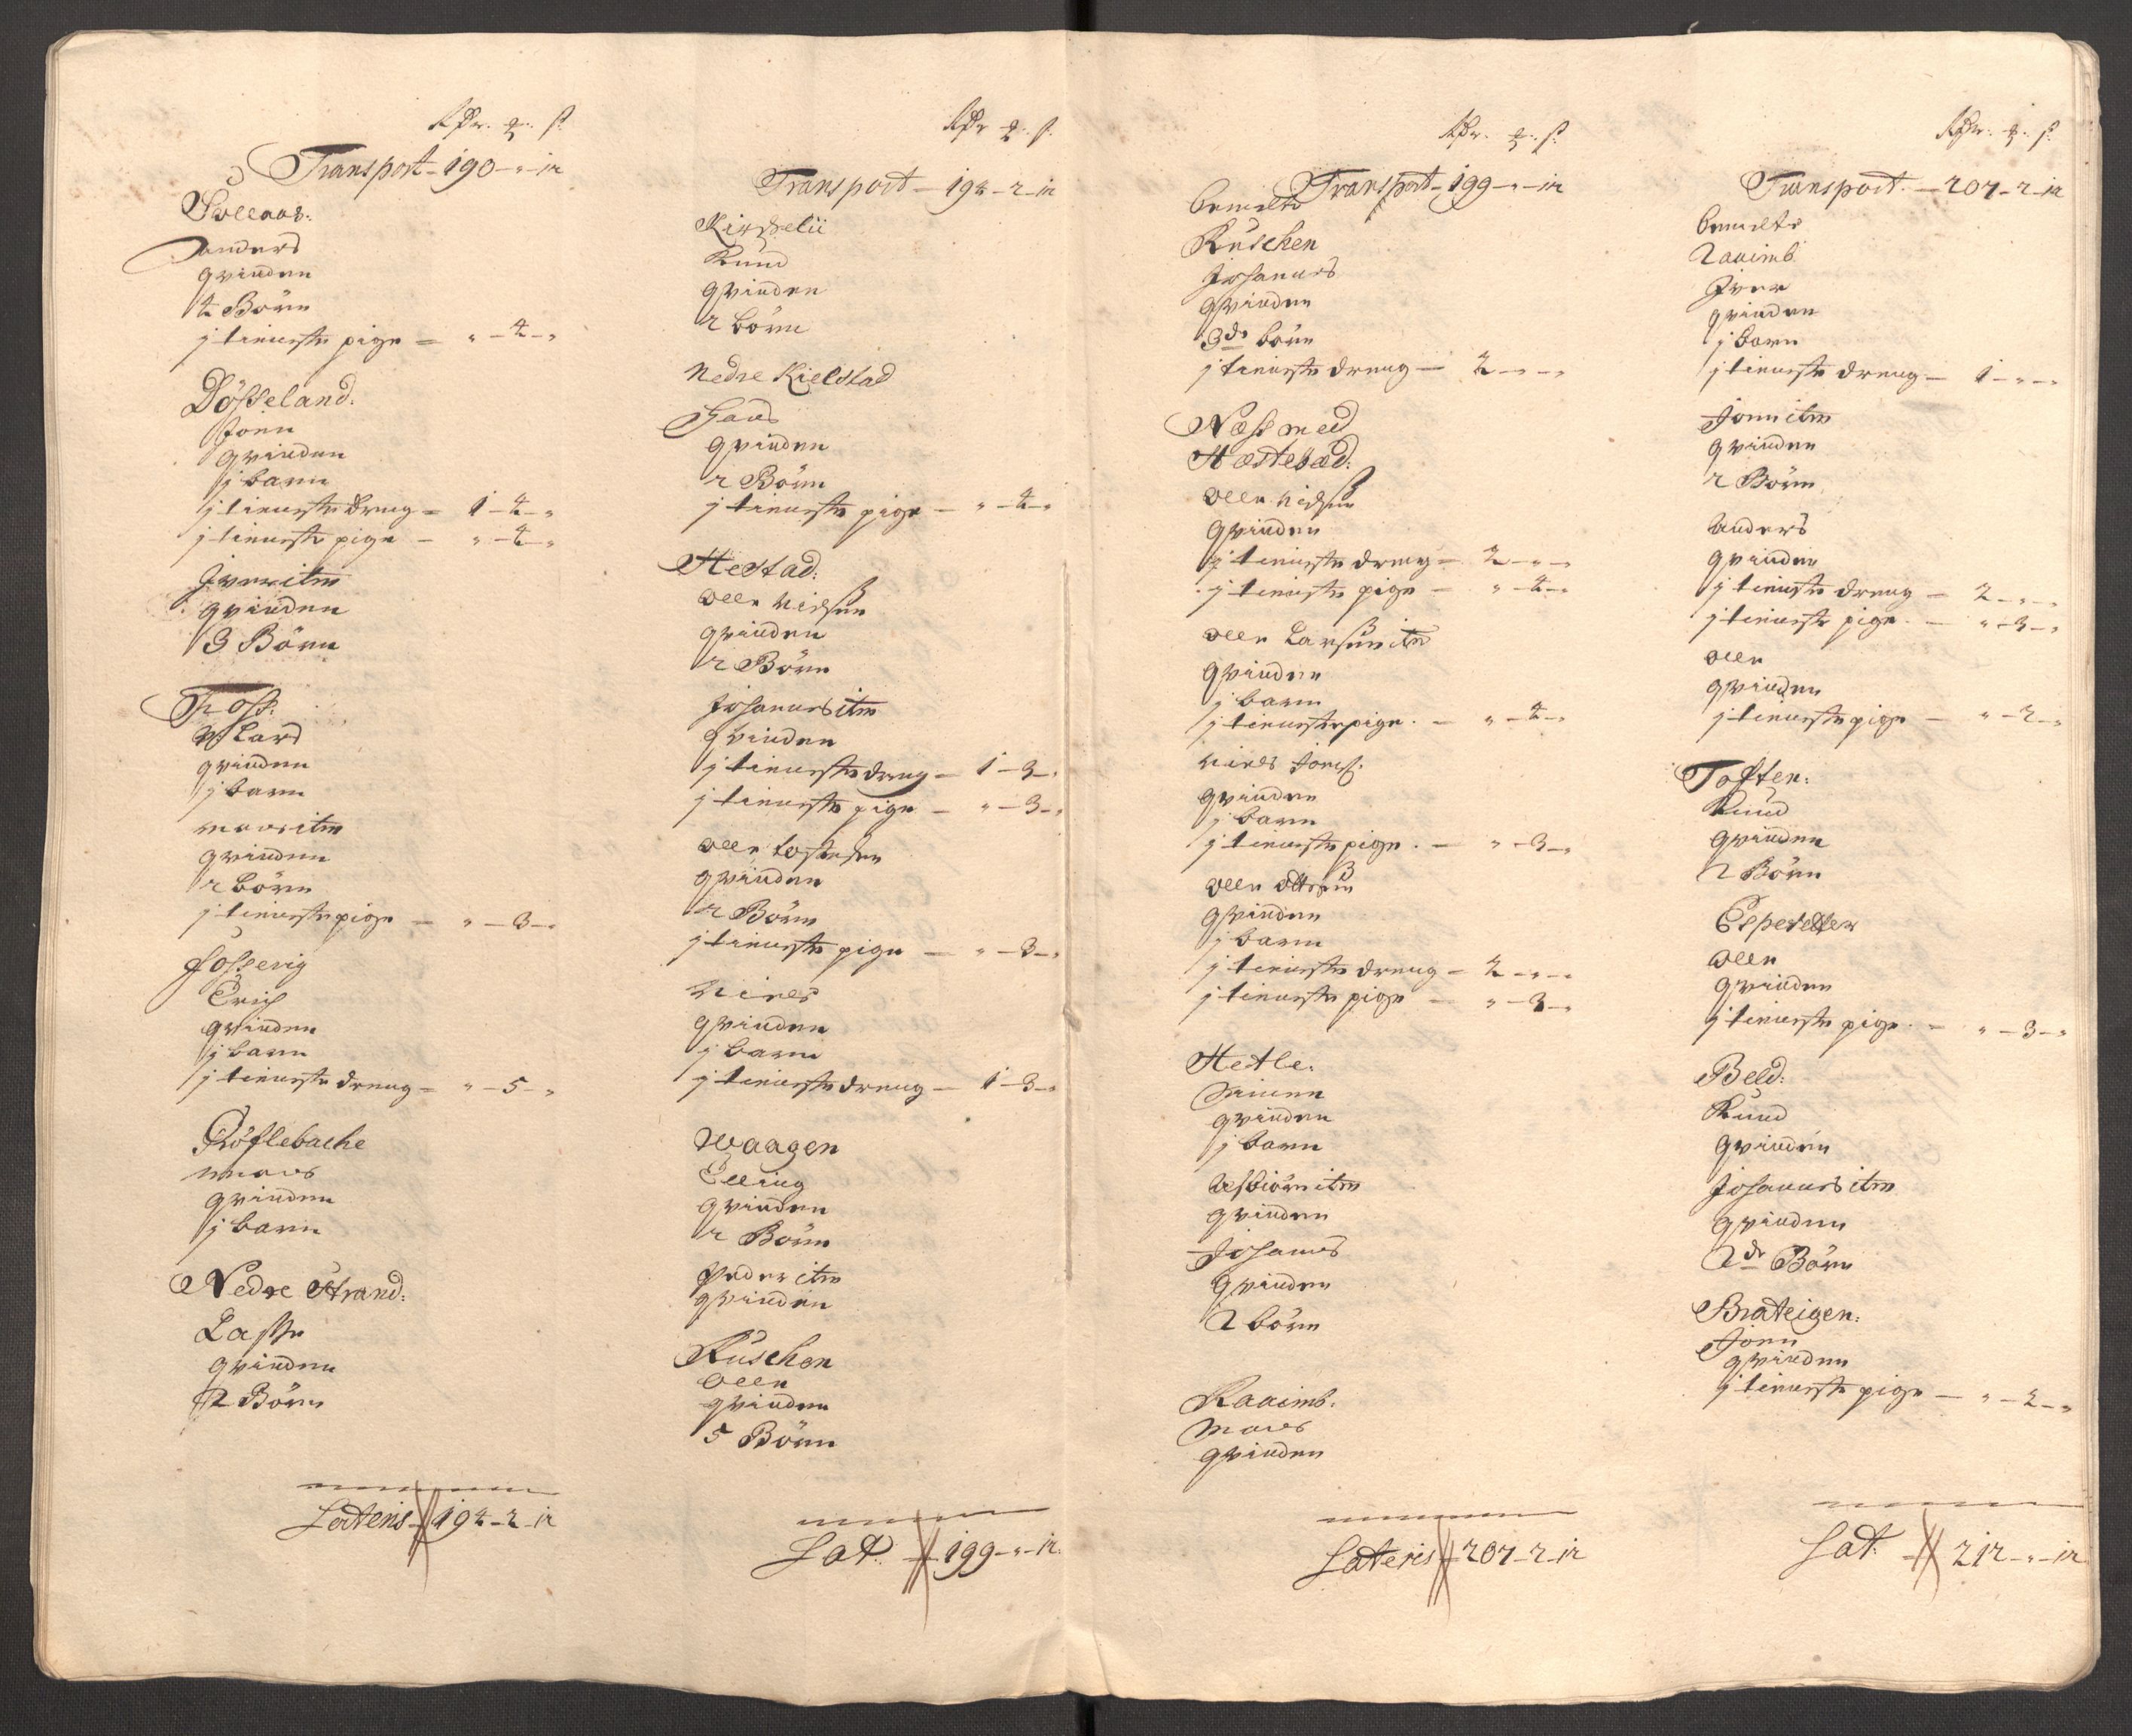 Rdr. ℥. ß.
Transport - 190 - " - 12
Sollaas:
Anders
qvinden
4 Börn
j tieneste pige — " - 4 - "
Dösseland:
Joen
qvinden
j barn
j tieneste dreng — 1 - 4 - "
j tieneste pige — " - 4 - "
Iver itm
qvinden
3 Börn
Foss:
Lars
qvinden
j barn
Mons itm
qvinden
2 börn
j tieneste pige — " - 3 - "
Fossevig
Erich
qvinden
j barn
j tieneste dreng — " - 5 - "
Röflebache
Mons
qvinden
j barn
Nedre Strand:
Lasse
qvinden
2 Börn
Lateris 194 - 2 - 12
Rdr ℥. ß.
Transport — 194 - 2 - 12
Kirchelii
Knud
qvinden
2 börn
Nedre Kielstad
Hans
qvinden
2 Börn
j tieneste pige — " - 4 - "
Hestad:
Olle Nielsen
qvinden
2 Börn
Johannes itm
qvinden
j tieneste dreng — 1 - 3 - "
j tieneste pige — " - 3 - "
Olle Tostensen
qvinden
2 Börn
j tieneste pige — " - 3 - "
Niels
qvinden
j barn
j tieneste dreng — 1 - 3 - "
Waagen
Elling
qvinden
2 Börn
Peder itm
qvinden
Kuschen
Olle
qvinden
5 Börn
Lat: 199 - " - 12
Rdr. ℥. ß.
Transport - 199 - " - 12
bemelte
Kuschen
Johannes
qvinden
3de börn
j tieneste dreng — 2 - " - "
Næss med
Hæstebæd:
Olle Nielsen
qvinden
j tieneste dreng — 2 - " - "
j tieneste pige — " - 4 - "
Olle Larsen itm
qvinden
j barn
j tieneste pige — " - 4 - "
Niels Jons:
qvinden
j barn
j tieneste pige — " - 3 - "
Olle Ottesen
qvinden
j barn
j tieneste dreng — 2 - " - "
j tieneste pige — " - 3 - "
Hetle:
Simen
qvinden
j barn
Asbiörn itm
qvinden
Johanes
qvinden
2 börn
Raaimb:
Mons
qvinden
Lateris 207 - 2 - 12
Rdr: ℥. ß.
Transport — 207 - 2 - 12
bemelte
Raaimb
Iver
qvinden
j barn
j tieneste dreng — 1 - " - "
Jonn itm
qvinden
2 Börn
Anders
qvinden
j tieneste dreng — 2 - " - "
j tieneste pige — " - 3 - "
Olle
qvinden
j tieneste pige — " - 2 - "
Toften:
Knud
qvinden
2 Börn
Espesetter
Olle
qvinden
j tieneste pige — " - 3 - "
Beld:
Knud
qvinden
Johannes itm
qvinden
2de Börn
Brateigen:
Jonn
qvinden
j tieneste pige — " - 2 - "
Lat: 212 - " - 12